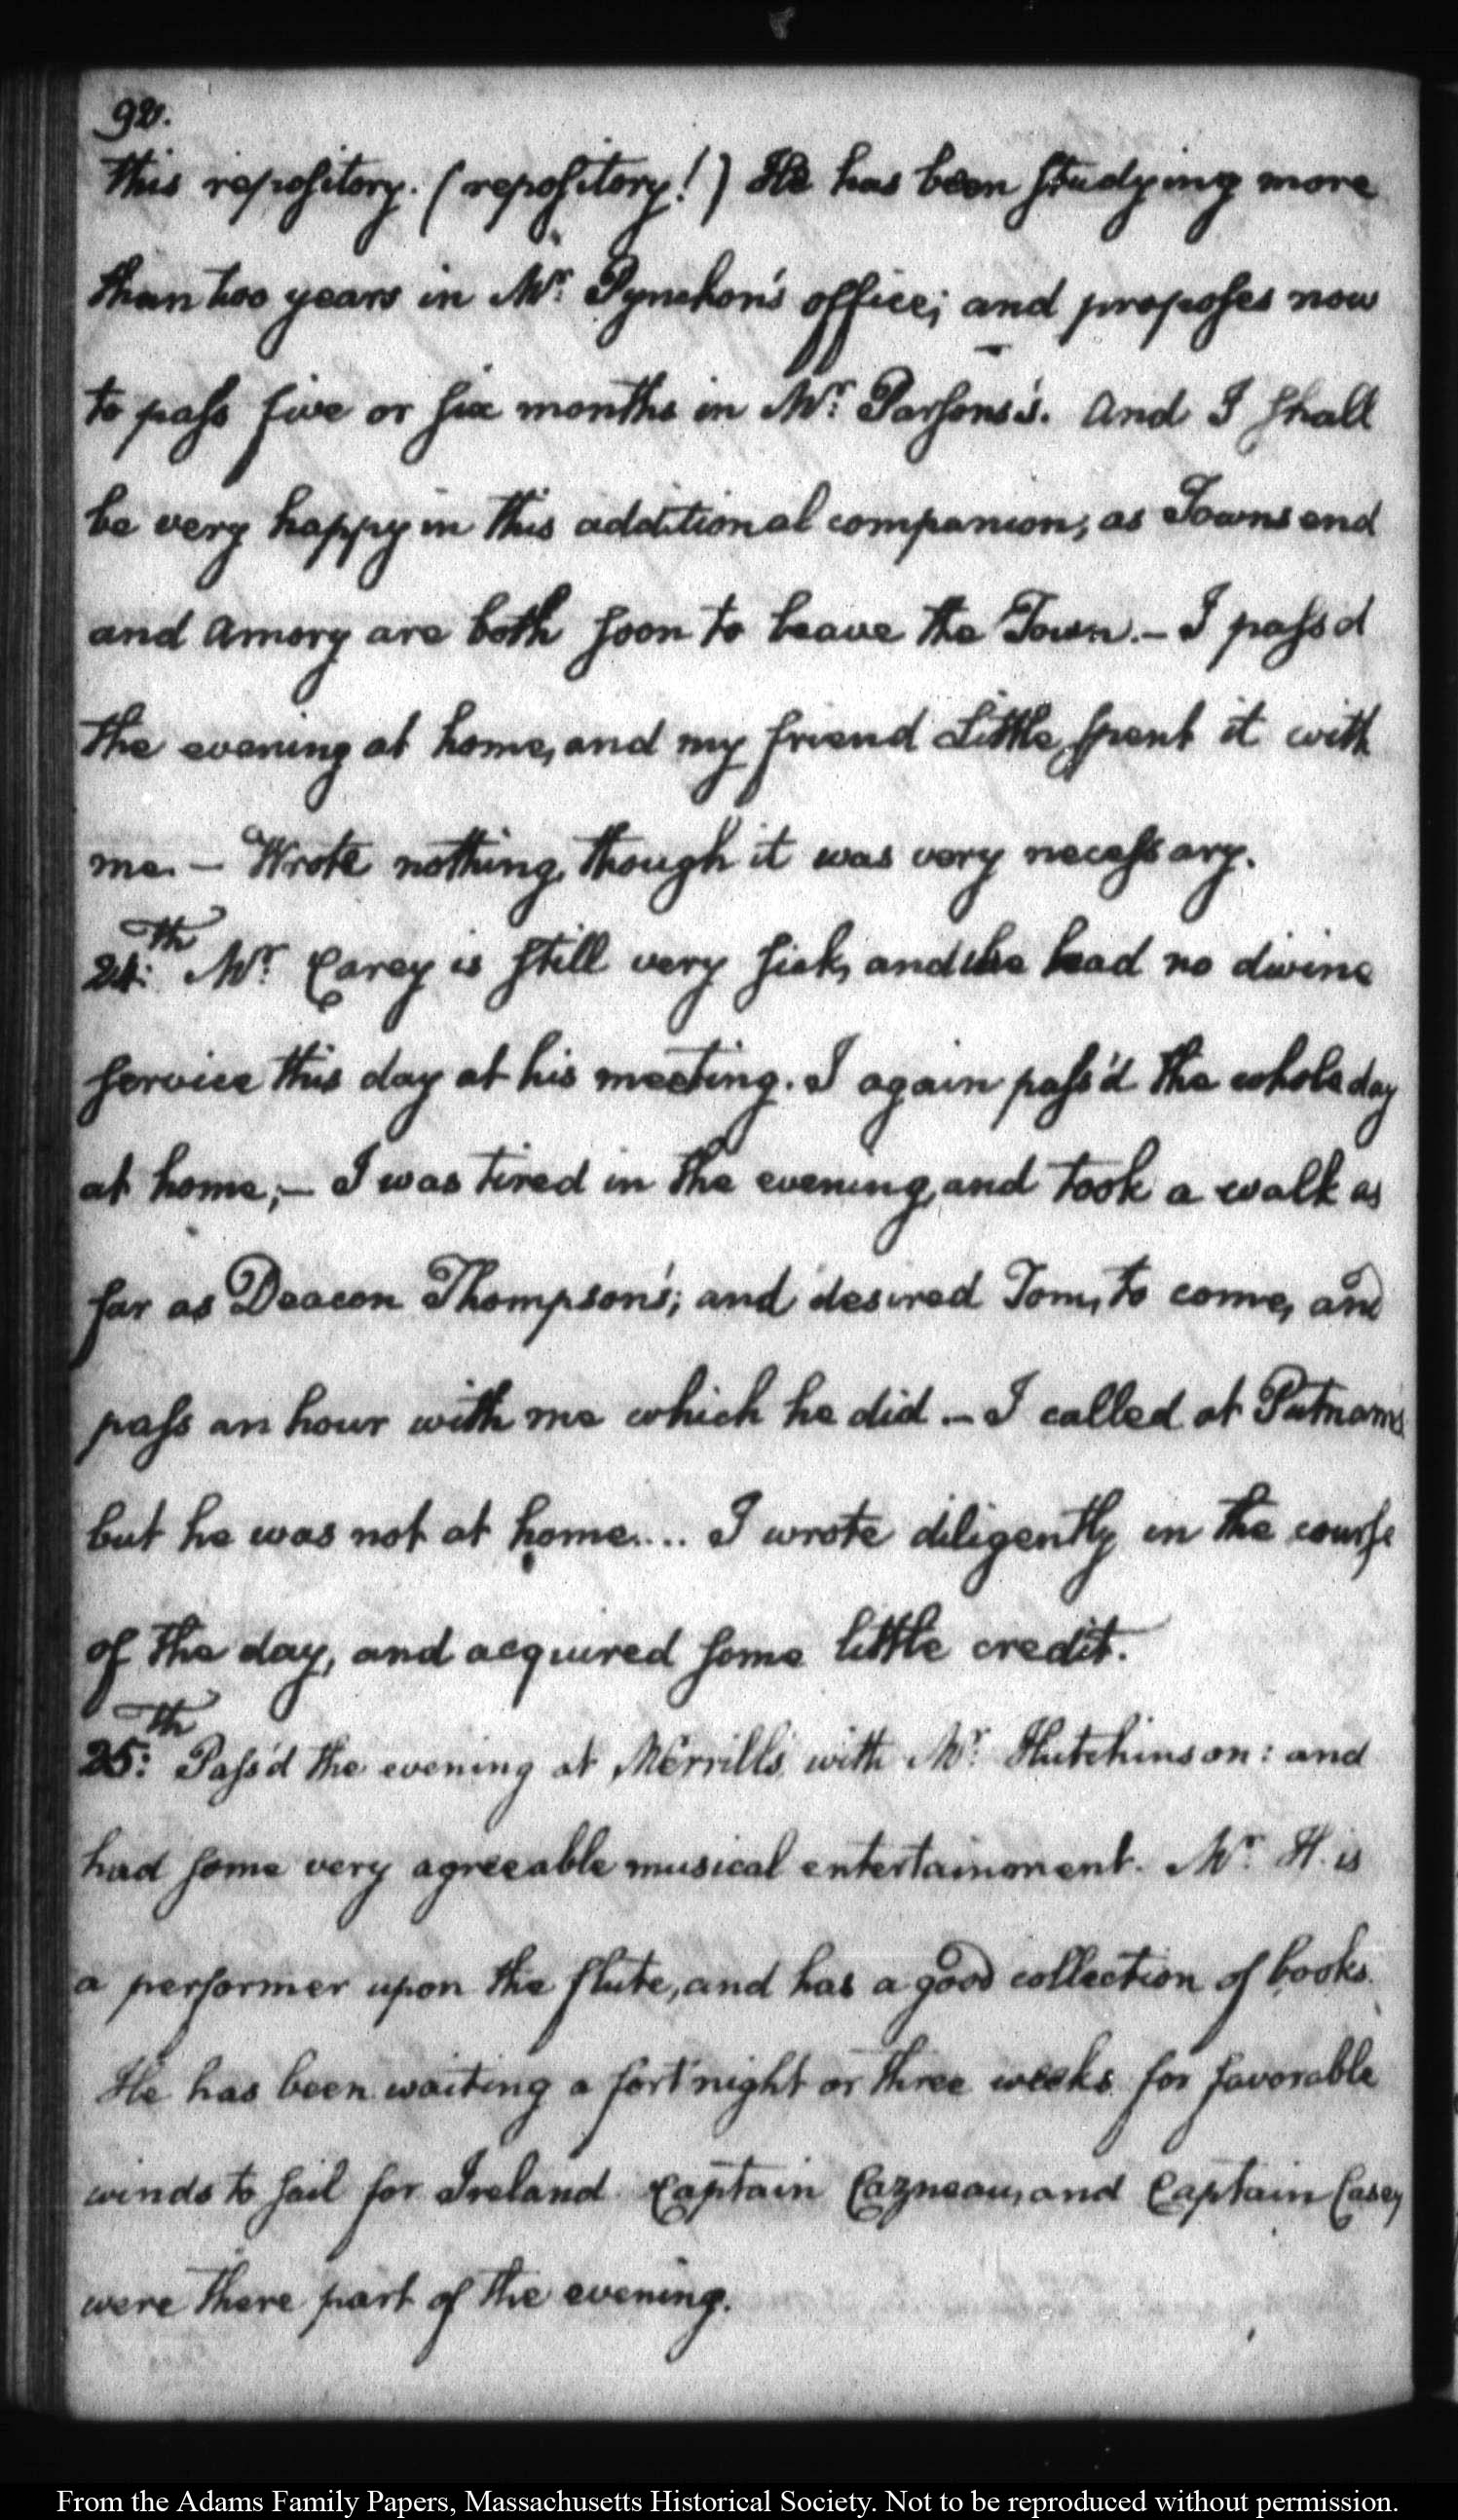 92.
this repository. (repository!) He has been studying more
than two years in Mr: Pynchon's office; and proposes now
to pass five or six months in Mr: Parsons's. And I shall
be very happy in this additional companion, as Townsend
and Amory are both soon to leave the Town.— I pass'd
the evening at home, and my friend Little, spent it with
me.— Wrote nothing, though it was very necessary.
24:th Mr: Carey is still very sick, and we had no divine
service this day at his meeting. I again pass'd the whole day
at home;— I was tired in the evening, and took a walk as
far as Deacon Thompson's; and desired Tom, to come, and
pass an hour with me which he did.— I called at Putnam's
but he was not at home.... I wrote diligently in the course
of the day, and acquired some little credit.
25:th Pass'd the evening at Merrill's, with Mr: Hutchinson: and
had some very agreeable musical entertainment. Mr: H. is
a performer upon the flute, and has a good collection of books.
He has been waiting a fortnight or three weeks for favorable
winds to sail for Ireland. Captain Cazneau, and Captain Casey
were there part of the evening.
From the Adams Family Papers, Massachusetts Historical Society. Not to be reproduced without permission.